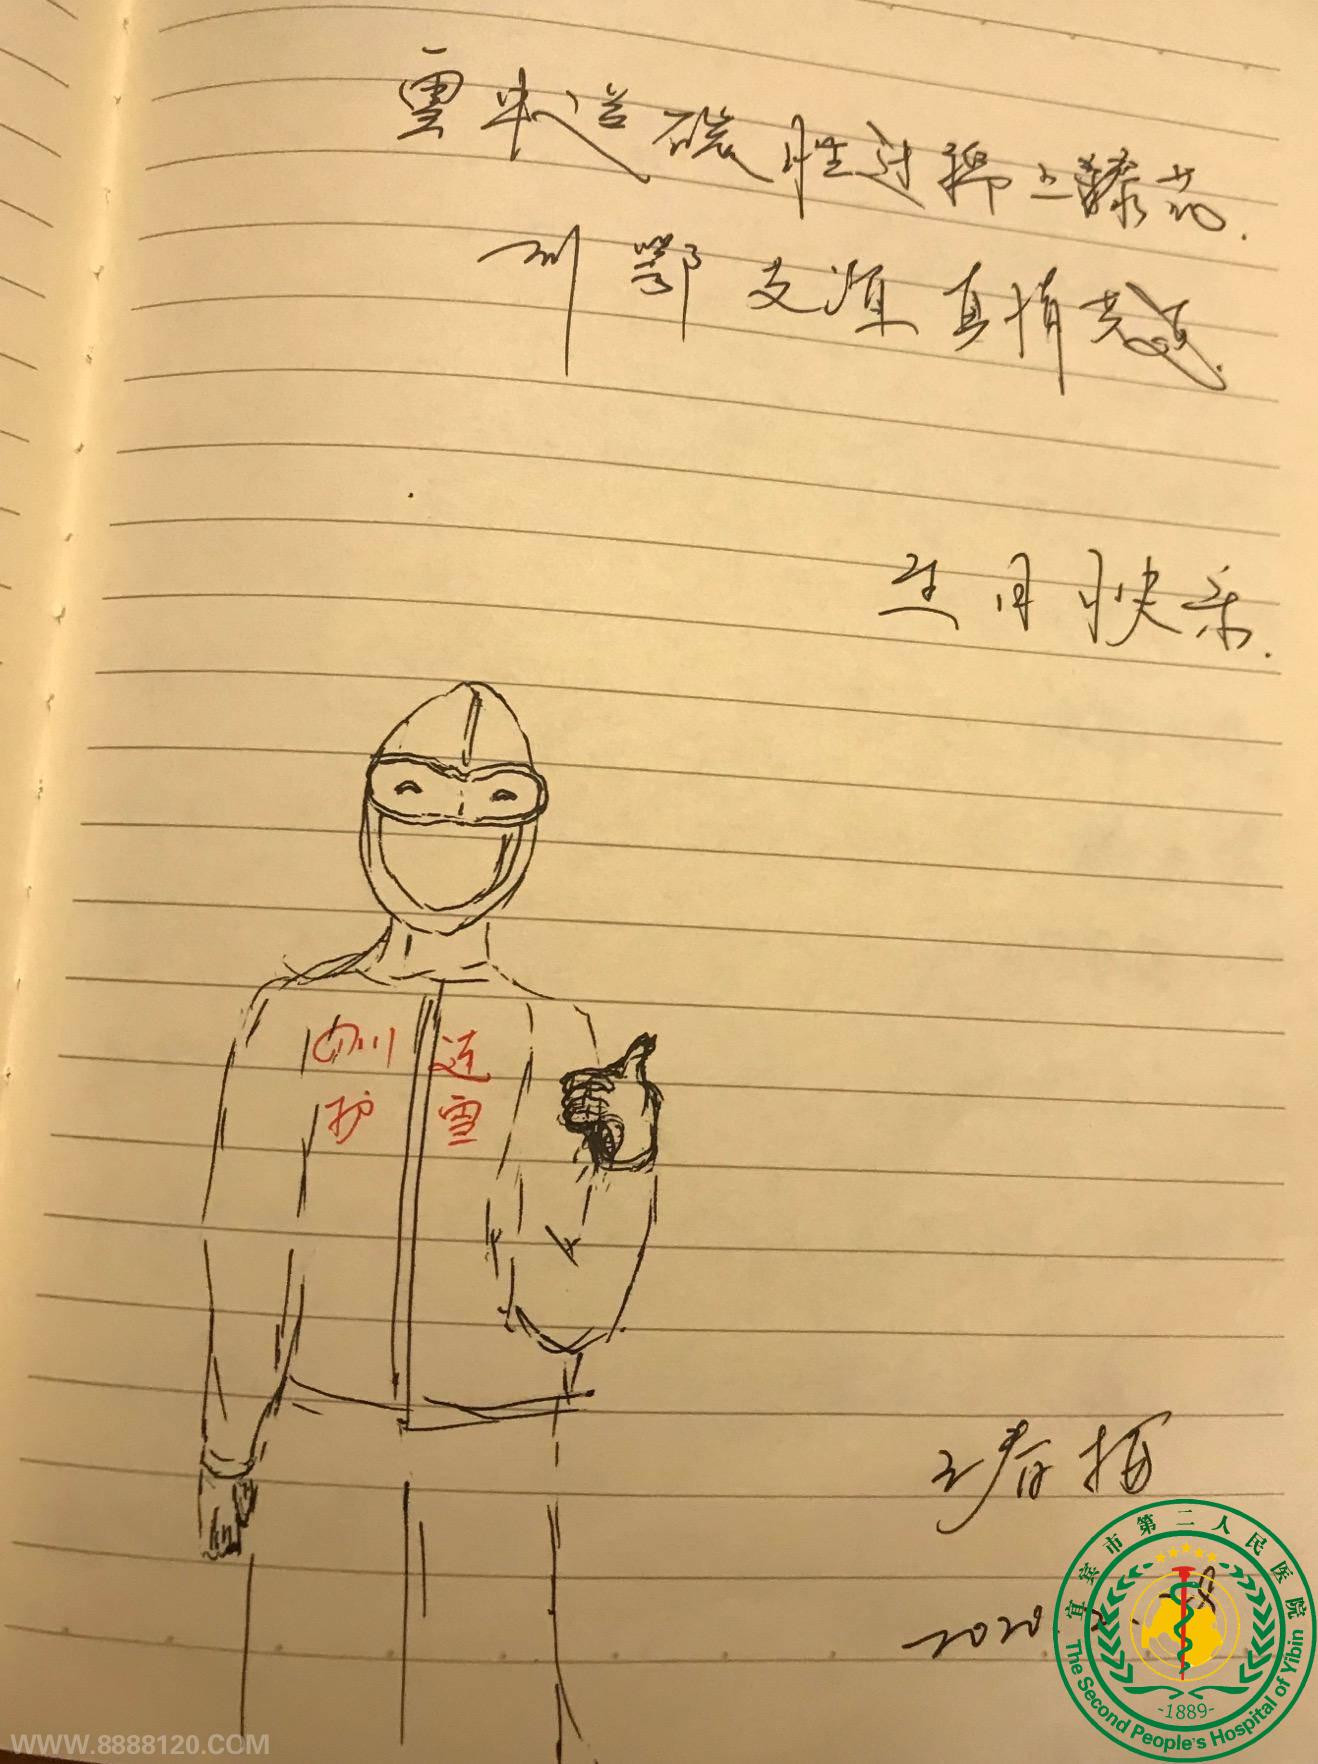 雪中送碳胜过锦上添花.
川鄂支源真情
生日快乐.
四川 连
护 雪
2020
宜宾市第二人民医院
The Second People's Hospital of Yibin
-1889-
WWW.8888120.COM